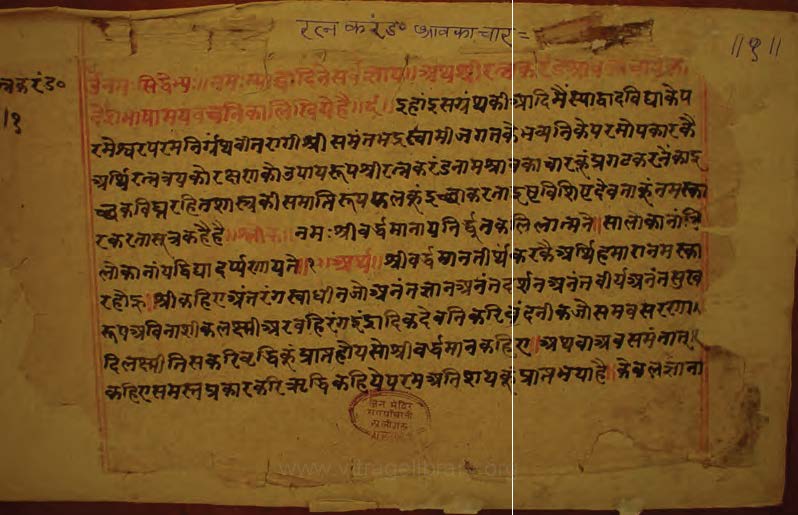 रत्न करंड० श्रावकाचार =
॥१॥
त्नकरंड०
॥१
उँनमः सिद्देभ्यः॥ नमः स्याद्वादिनेसर्वज्ञाय॥ अथश्रीरत्नकरंडश्रावकाचार
देशभाषामयवचनिकालिखियेहै॥ इहांइसग्रंथकीआदिमैंस्याद्वादविद्याकेप
रमेश्वरपरमनिर्ग्रंथवीतरागीश्रीसमंतभद्रस्वामीजगतकेभव्यनिकेपरमोपकारकै
अर्थिरत्नत्रयकोरक्षणकोउपायरूपश्रीरत्नकरंडनामश्रावकाचारकूंप्रगटकरनेंकाइ
च्छकविघ्नरहितशास्त्रकीसमाप्तिरूपफलकूंइच्छाकरताइष्टविशिष्टदेवताकूंनमस्का
रकरतासूत्रकहैहै॥श्लोक॥ नमःश्रीवर्द्धमानायनिर्द्धूतकलिलात्मने॥ सालोकानांत्रि
लोकानांयद्विद्यादर्प्पणायते॥१॥अर्थ॥ श्रीवर्द्धमानतीर्थंकरकैअर्थिहमारानमस्का
रहोऊ॥श्रीकहिएअंतरंगस्वाधीनजोअनंतज्ञानअनंतदर्शनअनंतवीर्यअनंतसुख
रूपअविनाशीकलक्ष्मीअरबहिरंगइंद्रादिकदेवनिकरिवंदनीकजोसमवसरणा
दिलक्ष्मीतिसकरिवृद्धिकूंप्राप्तहोयसोश्रीवर्द्धमानकहिए॥अथवाअवसमंतात्
कहिएसमस्तप्रकारकरिऋद्धिकहियेपरमअतिशयकूंप्राप्तभयाहै॥केवलज्ञाना
जैन मंदिर
www.vitragelibrary.org